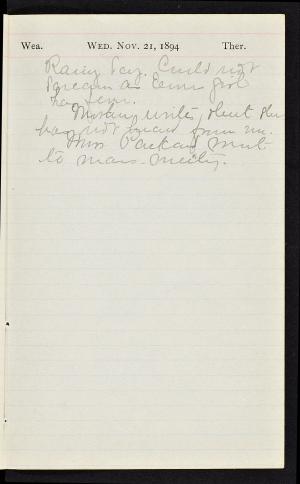 Wea. WED. NOV. 21, 1894 Ther.
Rainy day. Could not
as
has
Mother writes that they
have not heard from me.
Miss Packard went
to mass-meeting.